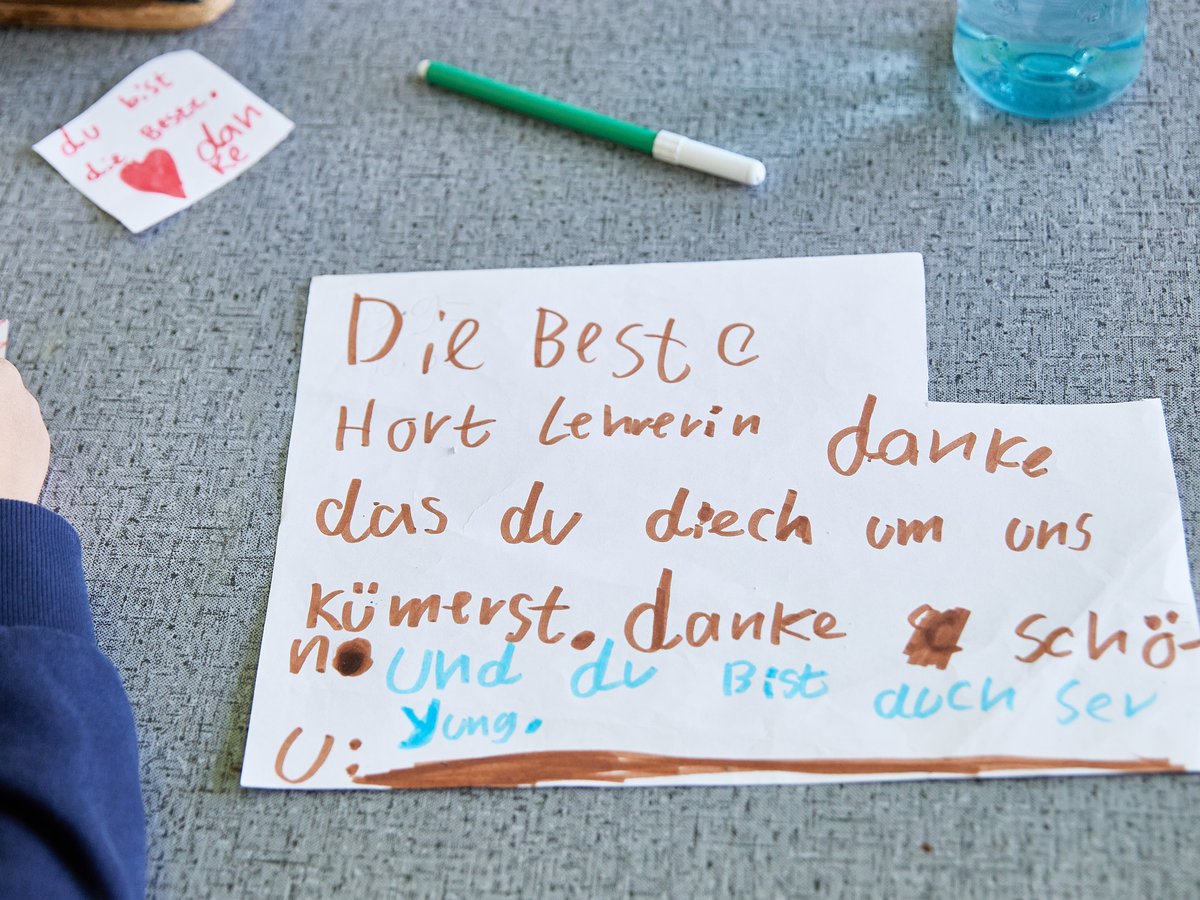 du bist
die Beste.
dan
ke
Die Beste
Hort Lehrerin danke
das du diech um uns
kümerst. danke schö-
n. Und du Bist auch ser
yung.
U: